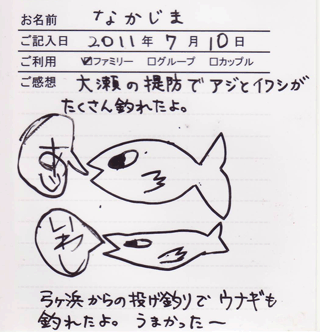 お名前 なかじま
ご記入日 2011年 7月 10日
ご利用 ☑ファミリー □グループ □カップル
ご感想 大瀬の堤防でアジとイワシが
たくさん釣れたよ。
あじ
いわし
弓ヶ浜からの投げ釣りでウナギも
釣れたよ。うまかった〜